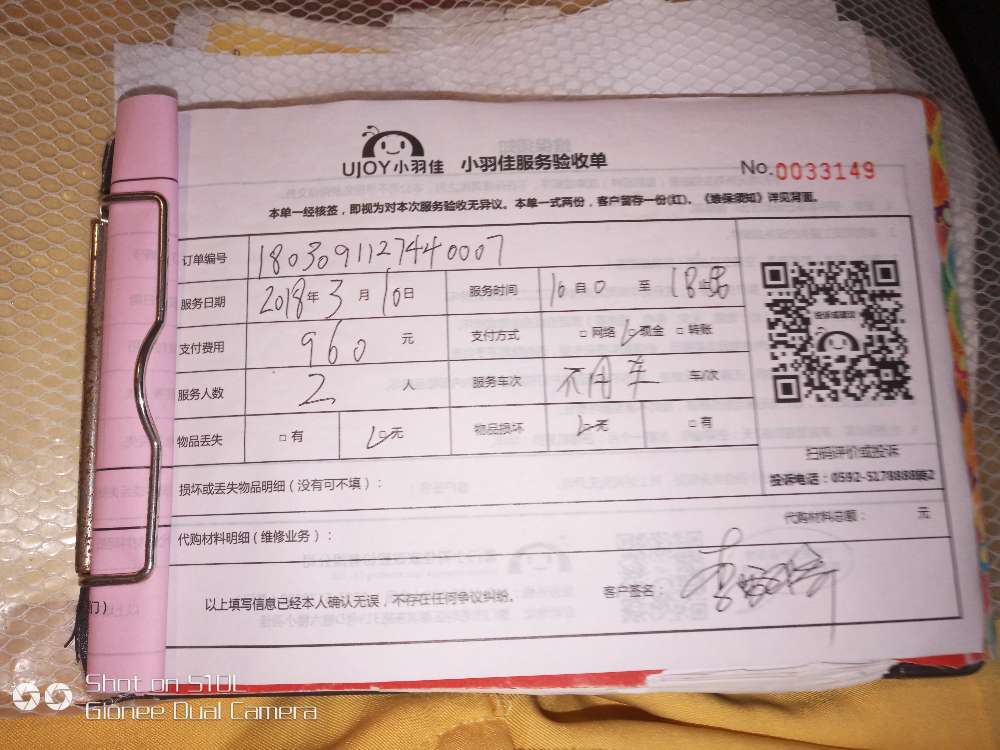 UJOY小羽佳 小羽佳服务验收单 No.0033149
本单一经核签，即视为对本次服务验收无异议。本单一式两份，客户留存一份(红)。《维保须知》详见背面。
订单编号 1803091127440007
服务日期 2018年3月10日 服务时间 16自0 至 18
支付费用 960 元 支付方式 □网络 □现金 □转账
服务人数 2 人 服务车次 不用车 车/次
物品丢失 □有 □无 物品损坏 □无 □有
扫码评价或投诉
投诉电话：0592-5178888转2
损坏或丢失物品明细（没有可不填）：
代购材料明细（维修业务）： 代购材料总额： 元
以上填写信息已经本人确认无误，不存在任何争议纠纷。 客户签名：
们）
Shot on S10L
Gionee Dual Camera